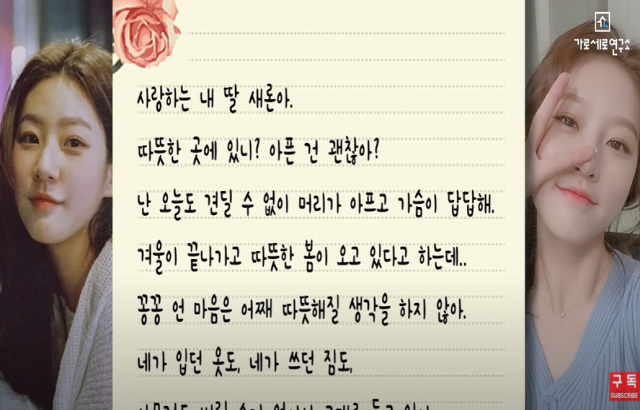 가로세로연구소
사랑하는 내 딸 새론아.
따뜻한 곳에 있니? 아픈 건 괜찮아?
난 오늘도 견딜 수 없이 머리가 아프고 가슴이 답답해.
겨울이 끝나가고 따뜻한 봄이 오고 있다고 하는데..
꽁꽁 언 마음은 어째 따뜻해질 생각을 하지 않아.
네가 입던 옷도, 네가 쓰던 짐도,
구독
SUBSCRIBE